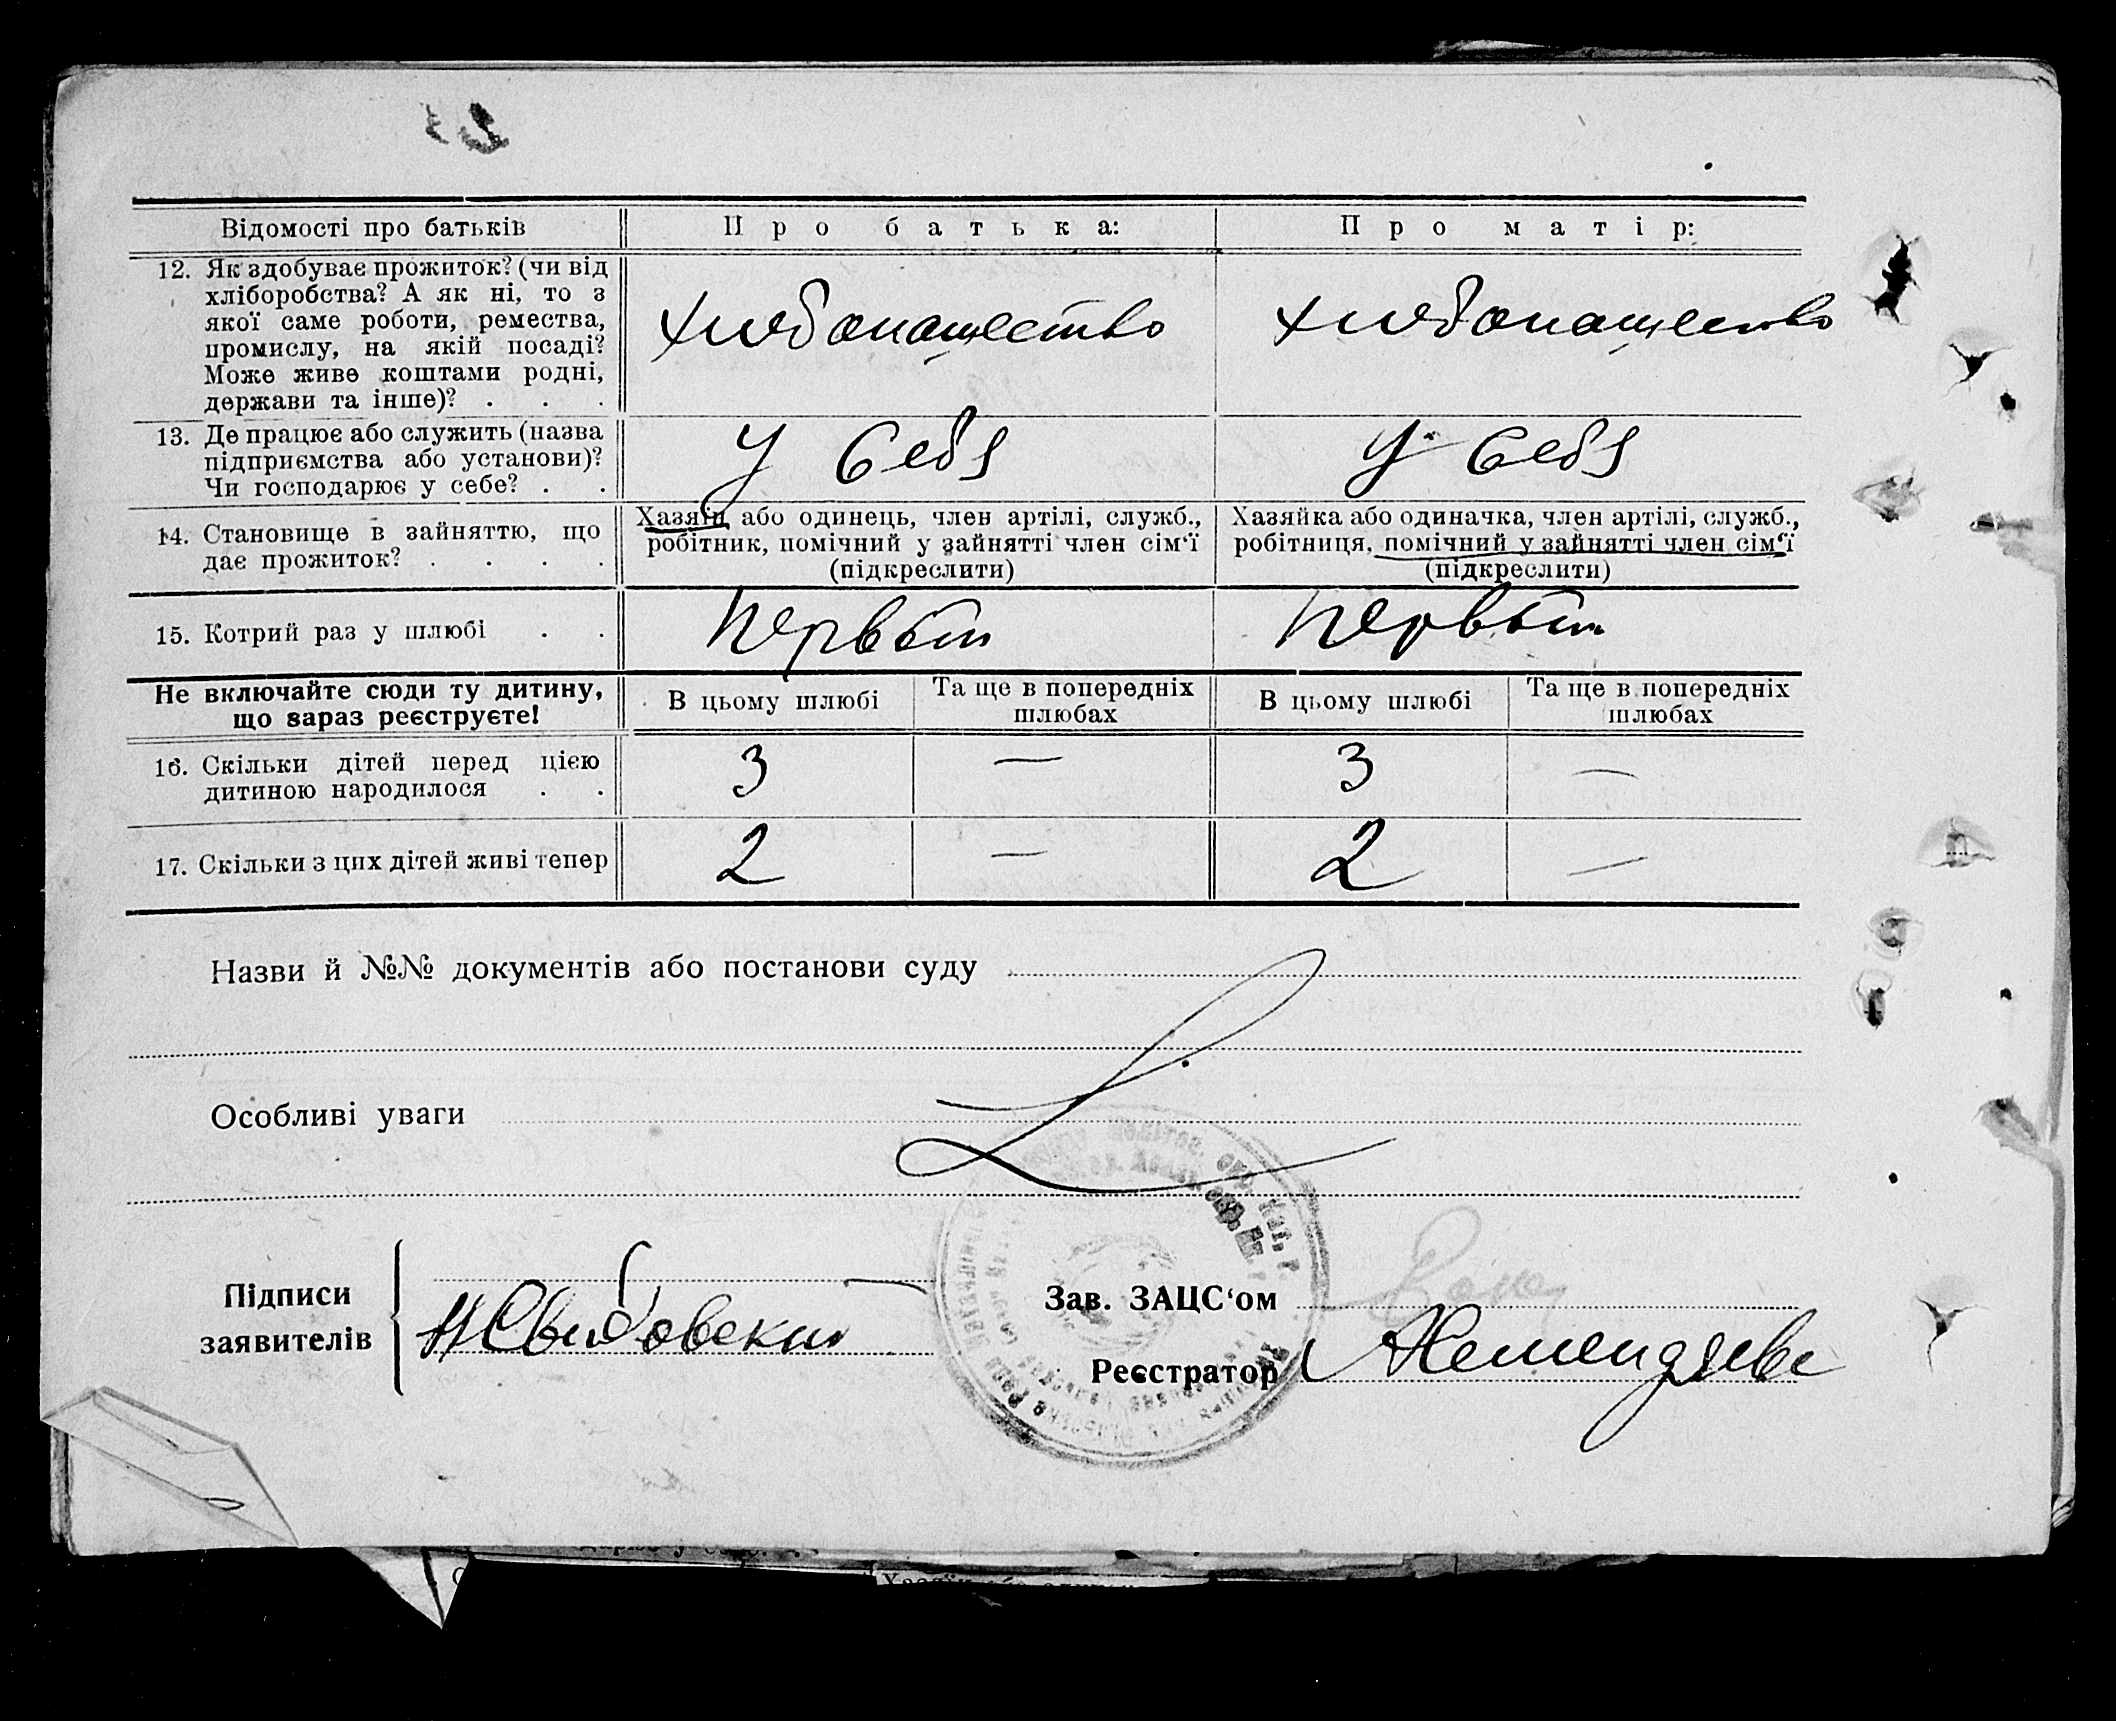 Відомості про батьків
Про батька:
Про матір:
12. Як здобуває прожиток? (чи від
хліборобства? А як ні, то з
якої саме роботи, ремества,
промислу, на якій посаді?
Може живе коштами родні,
держави та інше)? . . .
хлебопашество
хлебопашество
13. Де працює або служить (назва
підприємства або установи)?
Чи господарює у себе? . .
у себя
у себя
14. Становище в зайняттю, що
дає прожиток? . . . .
Хазяїн або одинець, член артілі, служб.,
робітник, помічний у зайнятті член сім‘ї
(підкреслити)
Хазяйка або одиначка, член артілі, служб.,
робітниця, помічний у зайнятті член сім‘ї
(підкреслити)
15. Котрий раз у шлюбі . .
первый
первый
Не включайте сюди ту дитину,
що зараз реєструєте!
В цьому шлюбі
Та ще в попередніх
шлюбах
В цьому шлюбі
Та ще в попередніх
шлюбах
16. Скільки дітей перед цією
дитиною народилося . .
3
—
3
—
17. Скільки з цих дітей живі тепер
2
—
2
—
Назви й №№ документів або постанови суду
Особливі уваги
Підписи
заявителів
Зав. ЗАЦС‘ом
Реєстратор